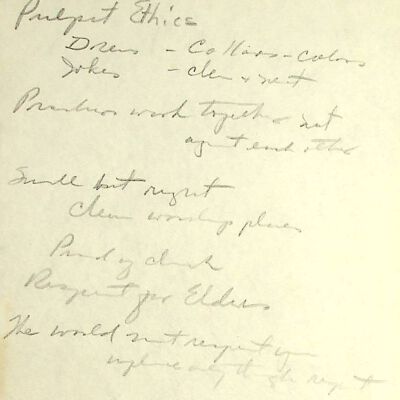 Pulpit Ethics
Dress - Collars - colors
Jokes - clean & neat
Preachers work together & not
against each other
Small but
clean worship places
Proud of church
Respect for Elders
The world not respect